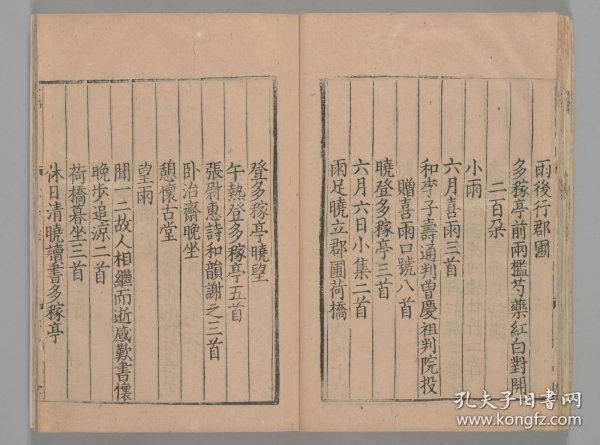 雨後行郡圃
多稼亭前兩檻芍藥紅白對開
二百朶
小雨
六月喜雨三首
和李子壽通判曾慶祖判院投
贈喜雨口號八首
曉登多稼亭三首
六月六日小集二首
雨足曉立郡圃荷橋
登多稼亭曉望
午熱登多稼亭五首
張尉惠詩和韻謝之三首
卧治齋晚坐
憩懷古堂
望雨
聞一二故人相繼而逝感歎書懷
晚步追涼二首
荷橋暮坐三首
休日清曉讀書多稼亭
孔夫子旧书网
www.kongfz.com